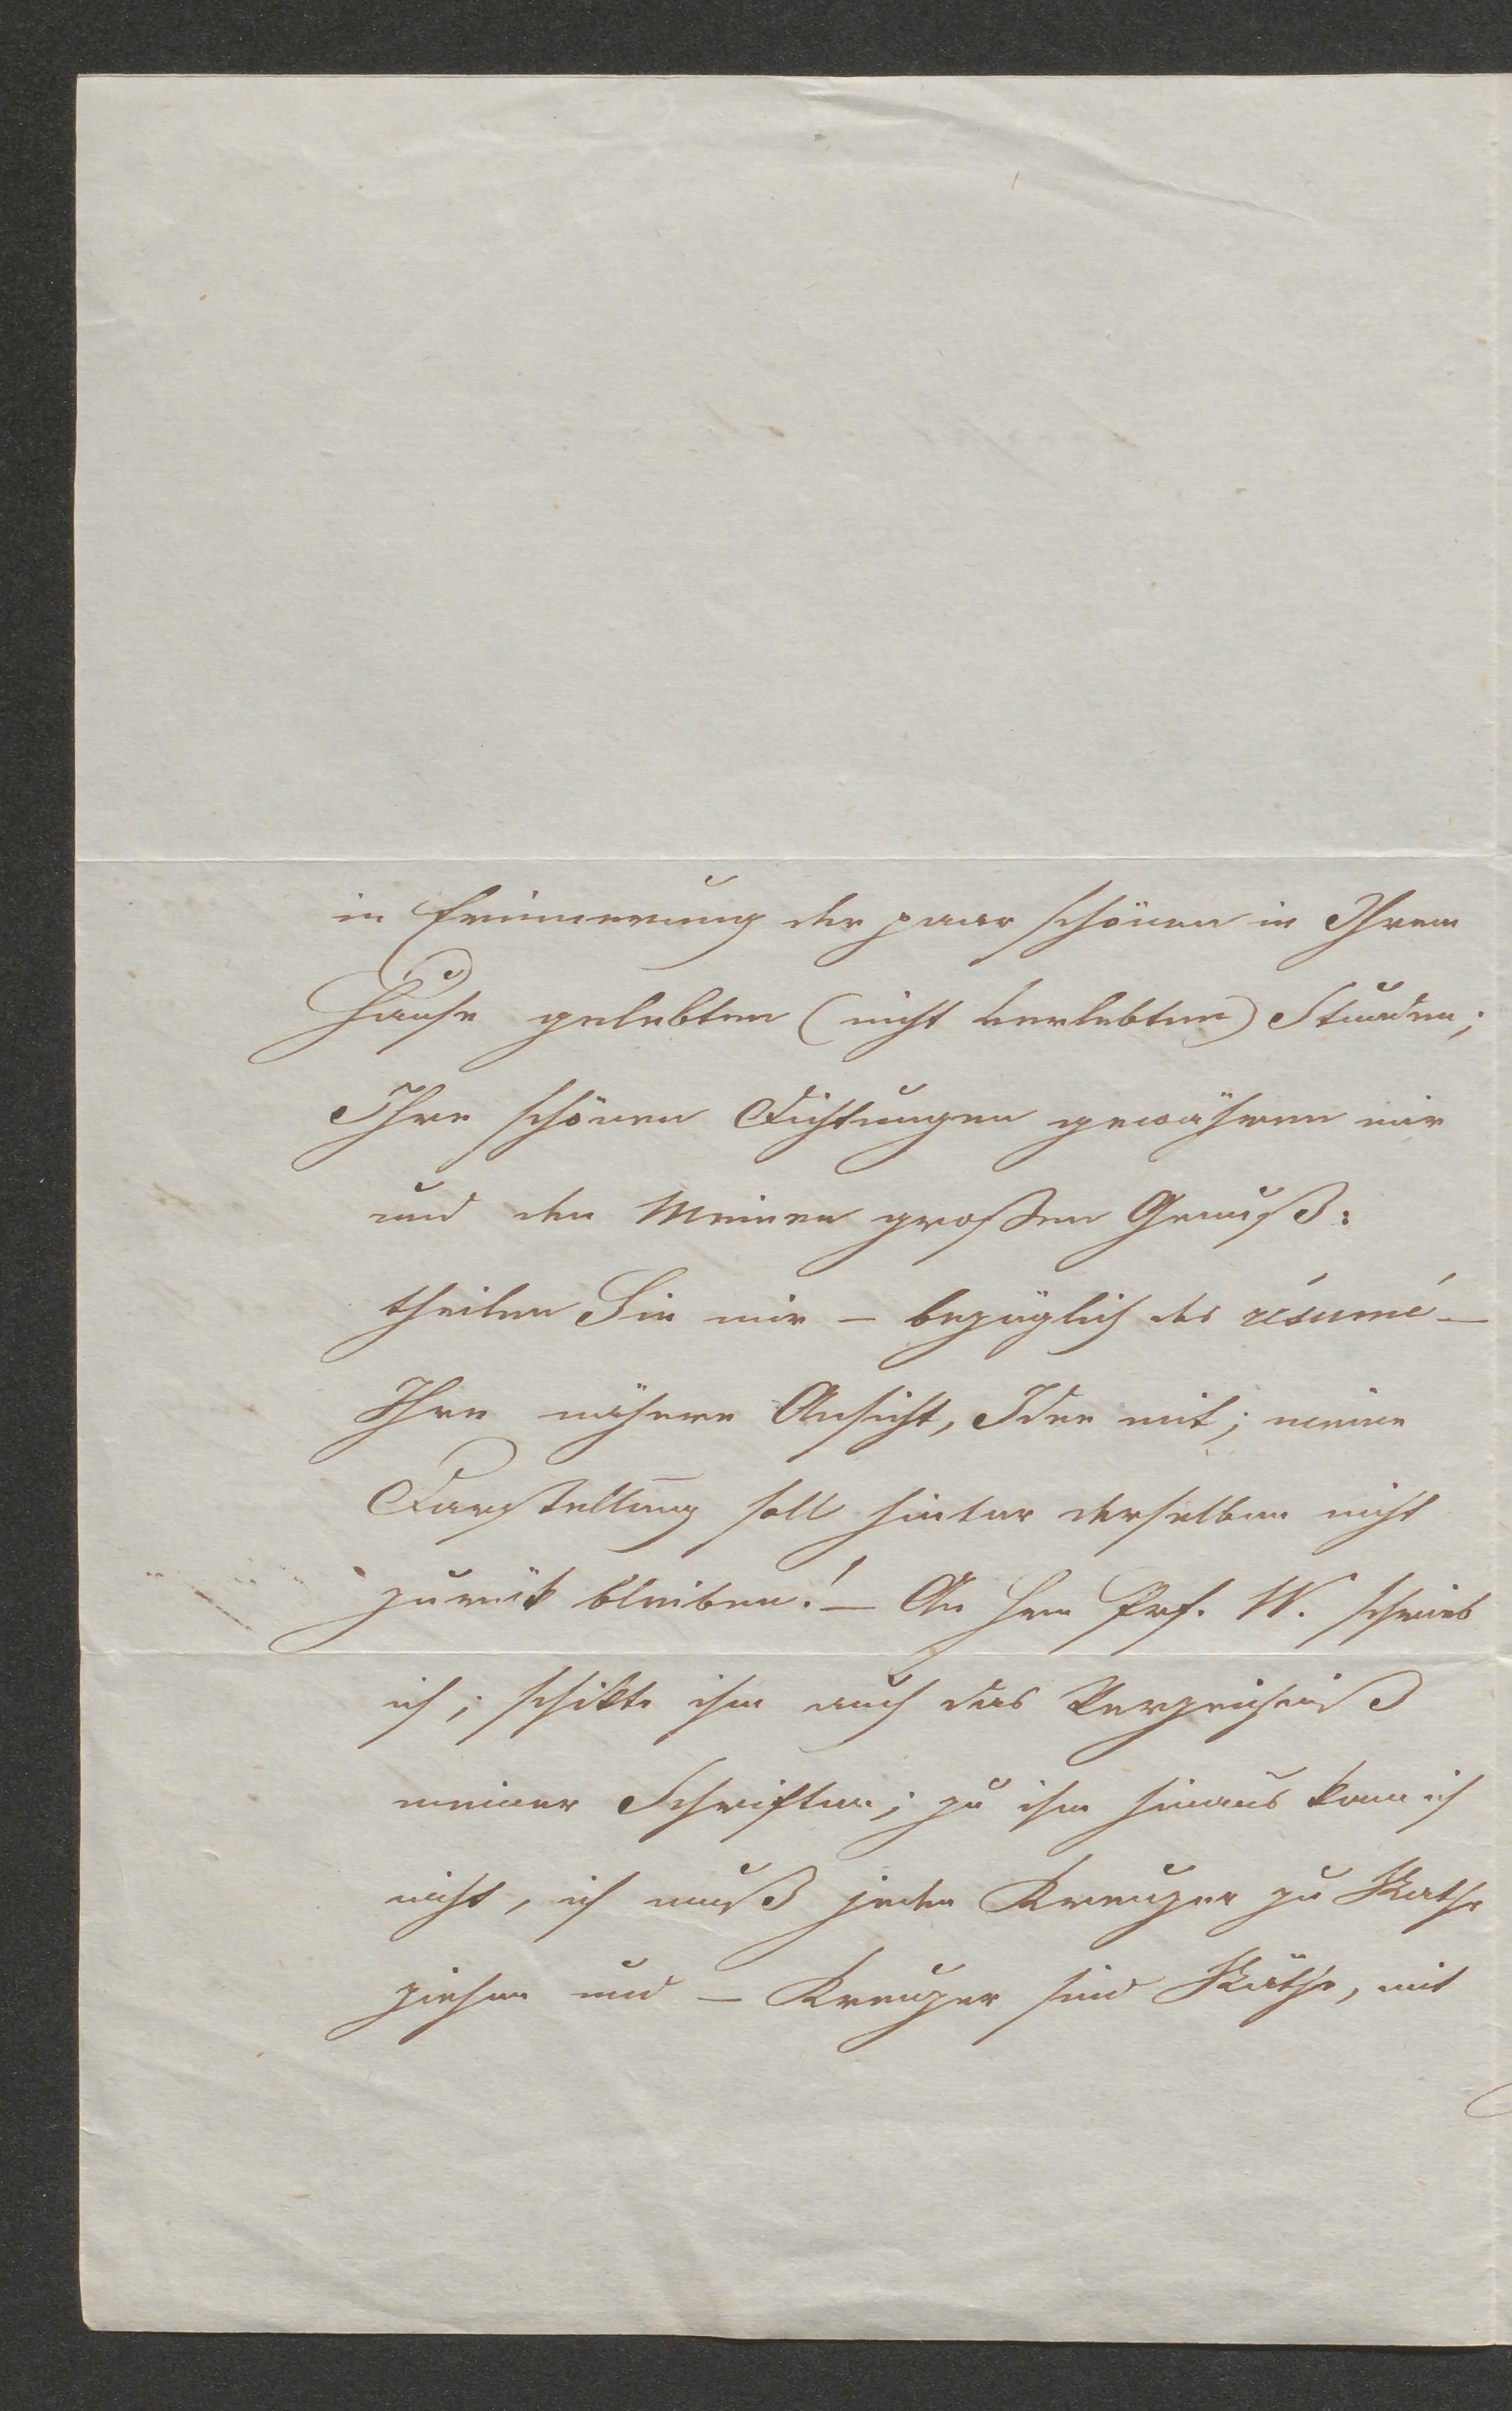 in Erinnerung der paar schönen in Ihrem
Hause gelebten (nicht verlebten) Stunden;
Ihre schönen Dichtungen gewähren mir
und den Meinen großen Genuß:
theilen Sie mir – bezüglich des résumé –
Ihre nähere Ansicht, Idee mit; meine
Darstellung soll hinter derselben nicht
zurük bleiben! – An Hrn Prf. W. schrieb
ich; schikte ihm auch das Verzeichniß
meiner Schriften; zu ihm hinaus kann ich
nicht, ich muß jeden Kreuzer zu Rathe
ziehen und – Kreuzer sind Räthe, mit